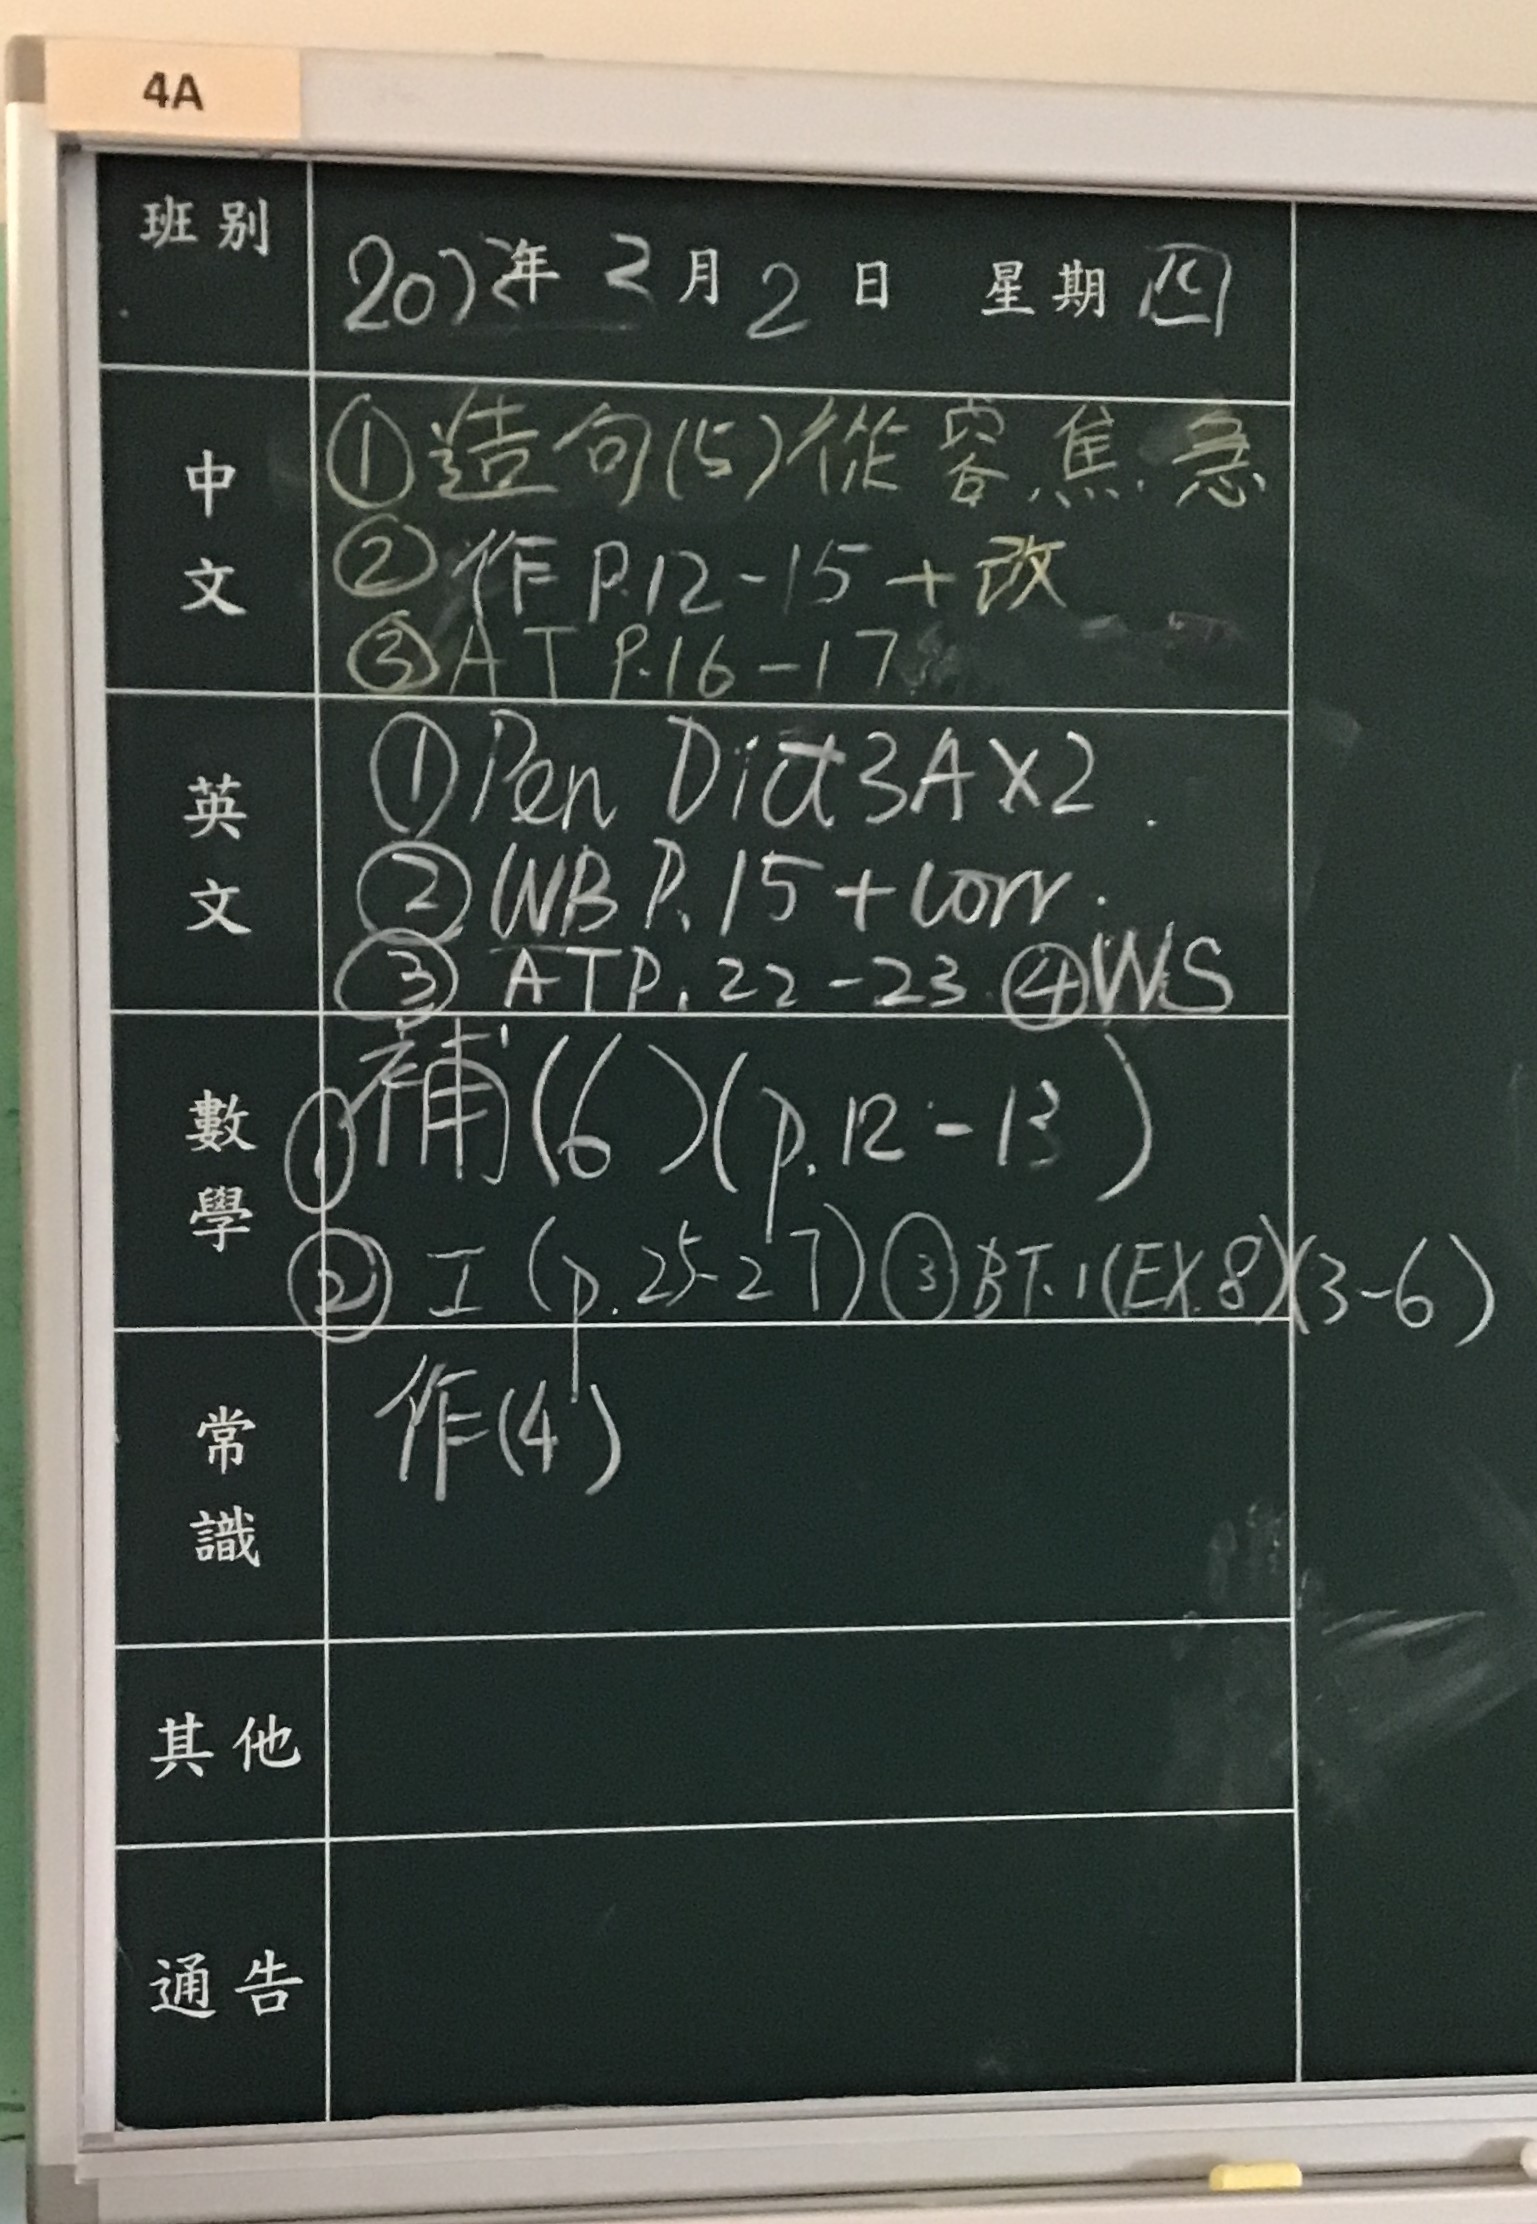 4A
班別
202年 2月2日 星期四
中文
①造句(5)從容、焦急
②作P.12-15+改
③AT P.16-17
英文
①Pen Dict 3A X2.
②WB P.15+corr.
③ATP.22-23 ④WS
數學
①補(6)(p.12-13)
②工(p.25-27)③BT.1(EX.8)(3-6)
常識
作(4)
其他
通告